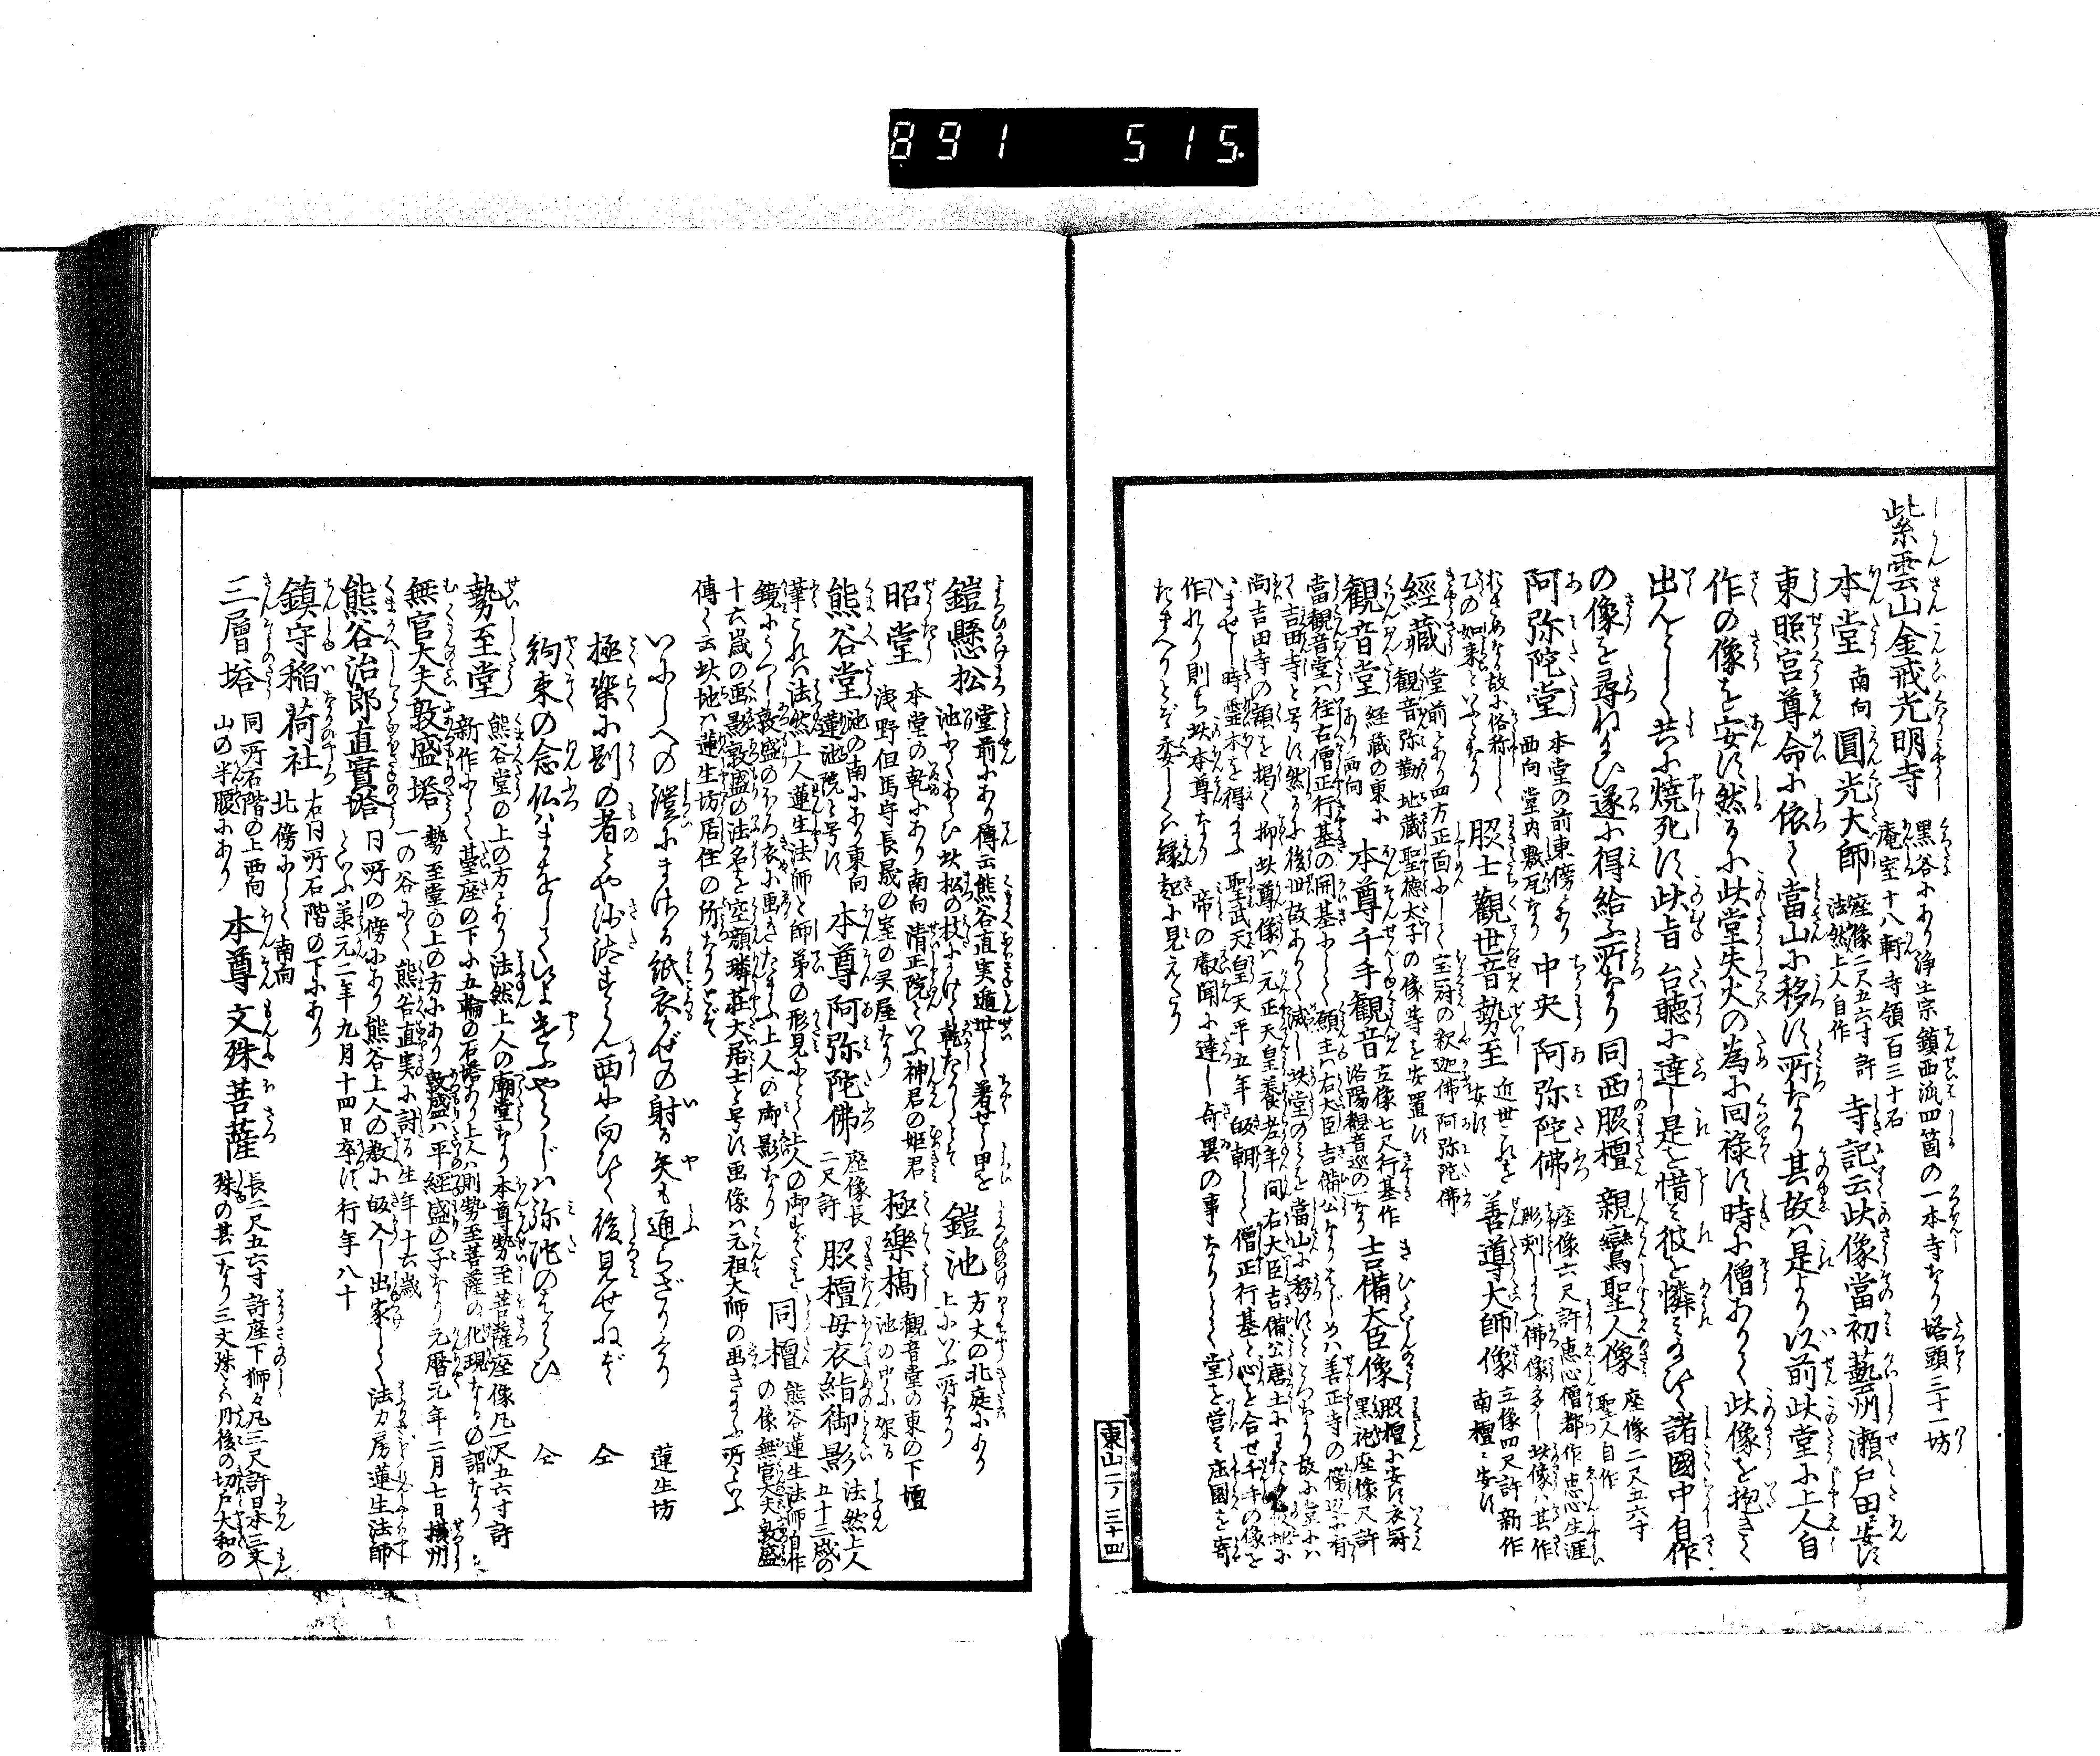 891 515.
紫雲山金戒光明寺 黒谷にあり浄土宗鎮西派四箇の一本寺なり塔頭三十一坊
庵室十八軒寺領百三十石
本堂 南向 圓光大師 座像二尺五六寸許
法然上人自作 寺記云此像當初藝州瀬戸田に安す
東照宮尊命に依て當山に移す所なり其故は是より以前此堂に上人自
作の像を安す然るに此堂失火の為に回禄す時に僧ありて此像を抱きて
出んとして共に焼死す此旨台聴に達し是を惜み彼を憐み給ひて諸國中自作
の像を尋ね給ひ遂に得給ふ所なり同西脇檀 親鸞聖人像 座像二尺五六寸
聖人自作
阿弥陀堂 本堂の前東傍にあり
西向堂内敷瓦なり 中央 阿弥陀佛 座像六尺許恵心僧都作恵心生涯
彫刻し給ふ佛像多し此像は其作
をさめなる故に俗称して
乙の如来といふとなり 脇士觀世音勢至 近世これを
安す 善導大師像 立像四尺許新作
南檀に安す
經藏 堂前にあり四方正面にして宝冠の釈迦佛阿弥陀佛
観音弥勒地蔵聖徳太子の像等を安置す
観音堂 経蔵の東に
あり西向 本尊千手観音 立像七尺行基作
洛陽観音巡の一なり 吉備大臣像 脇檀に安す衣冠
黒袍座像尺許
當観音堂は往古僧正行基の開基にして願主は右大臣吉備公なりはじめは善正寺の傍辺に有
て吉田寺と号す然るに後世故ありて滅し此堂のミを當山に移すところなり故に堂には
尚吉田寺の額を掲く抑此尊像は元正天皇養老年間右大臣吉備公唐土に
いませし時霊木を得給ふ聖武天皇天平五年皈朝して僧正行基と心を合せ千手の像を
作れり則ち此本尊なり 帝の叡聞に達し奇異の事なりとて堂を営ミ庄園を寄
たまへりとぞ委しくは縁起に見えたり
東山二ノ三十四
鎧懸松 堂前にあり傳云熊谷直実遁世して着せし甲を
池にてあらひ此松の枝にかけて乾たりしとぞ 鎧池 方丈の北庭にあり
上にいふ所なり
昭堂 本堂の乾にあり南向清正院といふ神君の姫君
浅野但馬守長晟の室の灵屋なり 極樂橋 観音堂の東の下壇
池の中に架る
熊谷堂 池の南にあり東向
蓮池院と号す 本尊阿弥陀佛 座像長
二尺許 脇檀母衣絹御影 法然上人
五十三歳の
筆これは法然上人蓮生法師と師弟の形見にとて上人の御すがたを
鏡にうつし敦盛のほろ衣に画きたまふ上人の御影なり 同檀 熊谷蓮生法師自作
の像無官大夫敦盛
十六歳の画影敦盛の法名を空顔璘荘大居士と号す画像は元祖大師の画き給ふ所といふ
傳て云此地は蓮生坊居住の所なりとぞ
いにしへの鎧にまけぬ紙衣かぜの射る矢も通らざりけり 蓮生坊
極樂に剛の者とや沙汰すらん西に向ひて後見せねば 仝
約束の念仏はまをしてさふらふよやらじは弥陀のはからひ 仝
勢至堂 熊谷堂の上の方にあり法然上人の廟堂なり本尊勢至菩薩座像凡一尺五六寸許
新作にして基座の下に五輪の石塔あり上人は則勢至菩薩の化現なるの謂なり
無官大夫敦盛塔 勢至堂の上の方にあり敦盛は平経盛の子なり元暦元年二月七日摂州
一の谷にて熊谷直実に討る生年十六歳
熊谷治郎直實塔 同所の傍にあり熊谷上人の教に皈入し出家して法力房蓮生法師
といふ羕元二年九月十四日卒す行年八十
鎮守稲荷社 右同所石階の下にあり
北傍にして南向
三層塔 同所石階の上西向
山の半腹にあり 本尊文殊菩薩 長一尺五六寸許座下獅々凡三尺許日本三文
殊の其一なり三文殊とは丹後の切戸大和の